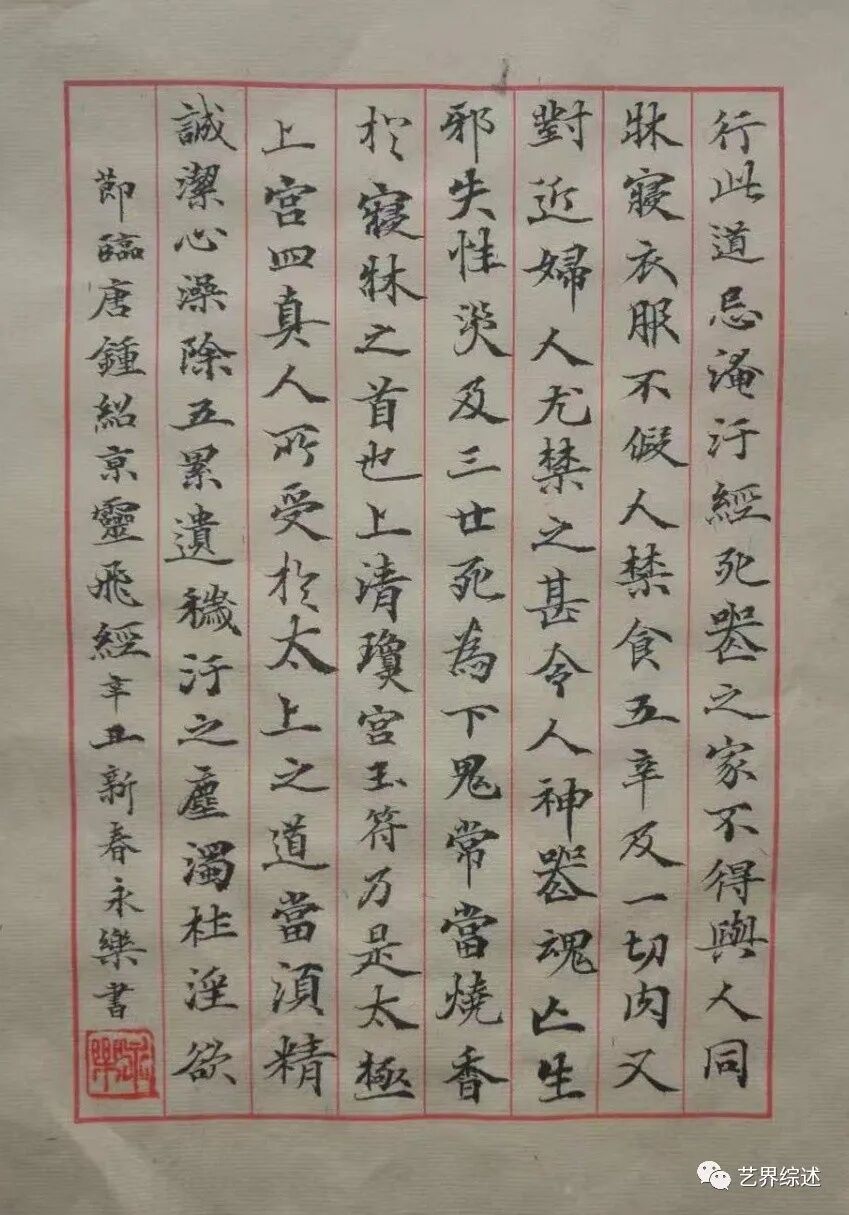 行此道忌淹汙經死喪之家不得與人同
牀寢衣服不假人禁食五辛及一切肉又
對近婦人尤禁之甚令人神喪魂亡生
邪失性災及三世死為下鬼常當燒香
於寢牀之首也上清瓊宮玉符乃是太極
上宮四真人所受於太上之道當須精
誠潔心澡除五累遺穢汙之塵濁杜淫欲
節臨唐鍾紹京靈飛經辛丑新春永樂書
永樂
艺界综述